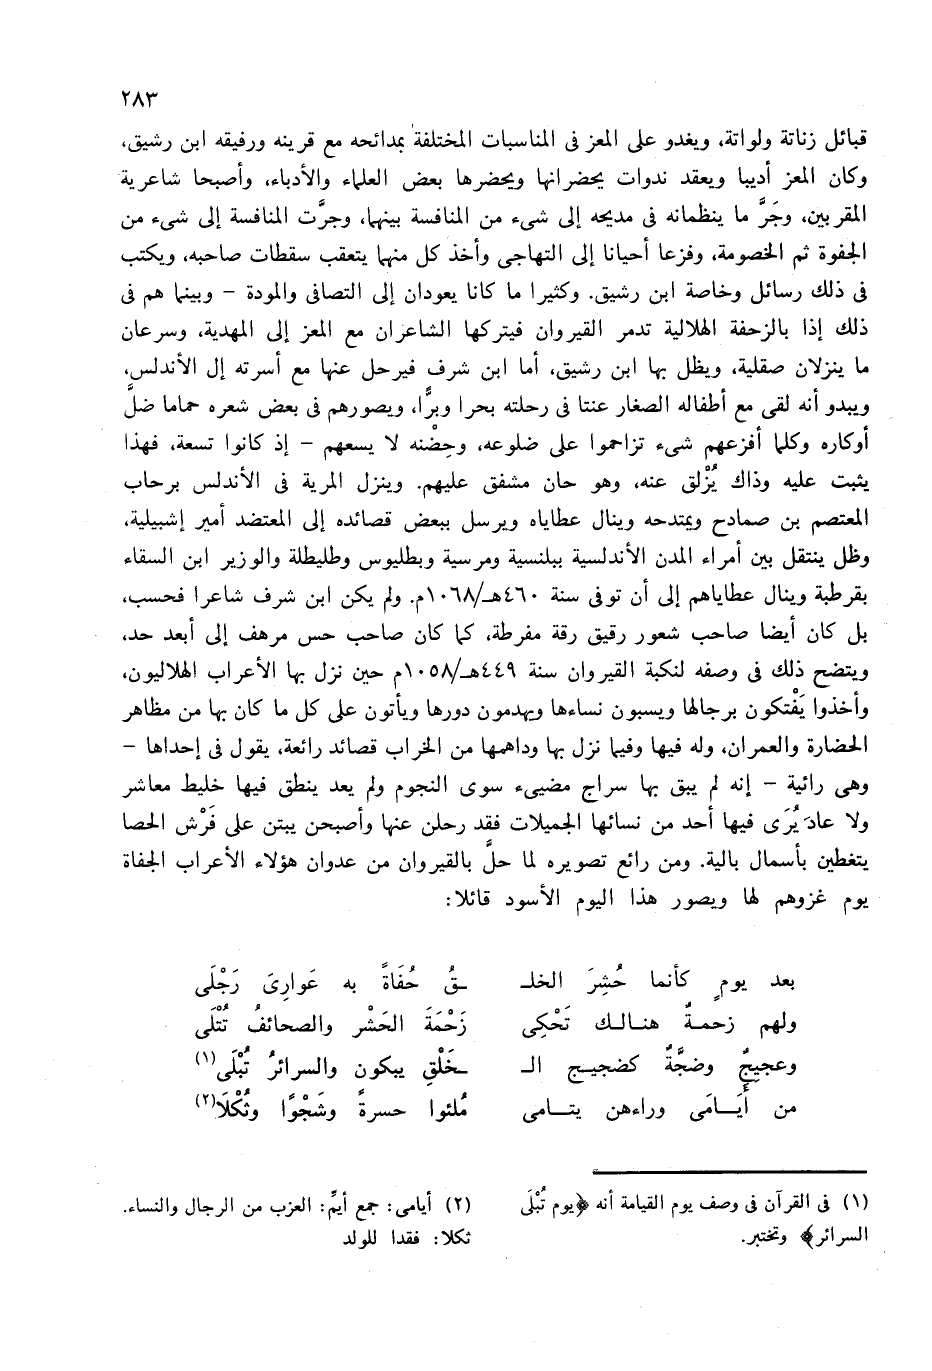 ٢٨٣
قبائل زناتة ولواتة، ويغدو على المعز فى المناسبات المختلفة بمدائحه مع قرينه ورفيقه ابن رشيق،
وكان المعز أديبا ويعقد ندوات يحضرانها ويحضرها بعض العلماء والأدباء، وأصبحا شاعرية
المقربين، وجَرَّ ما ينظمانه فى مديحه إلى شىء من المنافسة بينهما، وجرَّت المنافسة إلى شىء من
الجفوة ثم الخصومة، وفزعا أحيانا إلى التهاجى وأخذ كل منهما يتعقب سقطات صاحبه، ويكتب
فى ذلك رسائل وخاصة ابن رشيق. وكثيرا ما كانا يعودان إلى التصافى والمودة – وبينما هم فى
ذلك إذا بالزحفة الهلالية تدمر القيروان فيتركها الشاعران مع المعز إلى المهدية، وسرعان
ما ينزلان صقلية، ويظل بها ابن رشيق، أما ابن شرف فيرحل عنها مع أسرته إل الأندلس،
ويبدو أنه لقى مع أطفاله الصغار عنتا فى رحلته بحرا وبرًّا، ويصورهم فى بعض شعره حماما ضلَّ
أوكاره وكلما أفزعهم شىء تزاحموا على ضلوعه، وحِضْنه لا يسعهم – إذ كانوا تسعة، فهذا
يثبت عليه وذاك يُزْلق عنه، وهو حان مشفق عليهم. وينزل المرية فى الأندلس برحاب
المعتصم بن صمادح ويمتدحه وينال عطاياه ويرسل ببعض قصائده إلى المعتضد أمير إشبيلية،
وظل ينتقل بين أمراء المدن الأندلسية ببلنسية ومرسية وبطليوس وطليطلة والوزير ابن السقاء
بقرطبة وينال عطاياهم إلى أن توفى سنة ٤٦٠هـ/١٠٦٨م. ولم يكن ابن شرف شاعرا فحسب،
بل كان أيضا صاحب شعور رقيق رقة مفرطة، كما كان صاحب حس مرهف إلى أبعد حد،
ويتضح ذلك فى وصفه لنكبة القيروان سنة ٤٤٩هـ/١٠٥٨م حين نزل بها الأعراب الهلاليون،
وأخذوا يَفْتكون برجالها ويسبون نساءها ويهدمون دورها ويأتون على كل ما كان بها من مظاهر
الحضارة والعمران، وله فيها وفيما نزل بها وداهمها من الخراب قصائد رائعة، يقول فى إحداها –
وهى رائية – إنه لم يبق بها سراج مضيىء سوى النجوم ولم يعد ينطق فيها خليط معاشر
ولا عاد يُرَى فيها أحد من نسائها الجميلات فقد رحلن عنها وأصبحن يبتن على فَرْش الحصا
يتغطين بأسمال بالية. ومن رائع تصويره لما حلَّ بالقيروان من عدوان هؤلاء الأعراب الجفاة
يوم غزوهم لها ويصور هذا اليوم الأسود قائلا:
بعد يومٍ كأنما حُشِرَ الخلـ ـقُ حُفَاةً به عَوارِىَ رَجْلَى
ولهم زحمةٌ هنالك تَحْكِى زَحْمَةَ الحَشْر والصحائفُ تُتْلَى
وعجيجٌ وضجَّةٌ كضجيج الـ ـخَلْقِ يبكون والسرائرُ تُبْلَى(١)
من أَيَامَى وراءهن يتامى مُلئوا حسرةً وشَجْوًا وثُكْلَا(٢)
(١) فى القرآن فى وصف يوم القيامة أنه ﴿يوم تُبْلَى
السرائر﴾ وتختبر.
(٢) أيامى: جمع أيمِّ: العزب من الرجال والنساء.
ثكلا: فقدا للولد